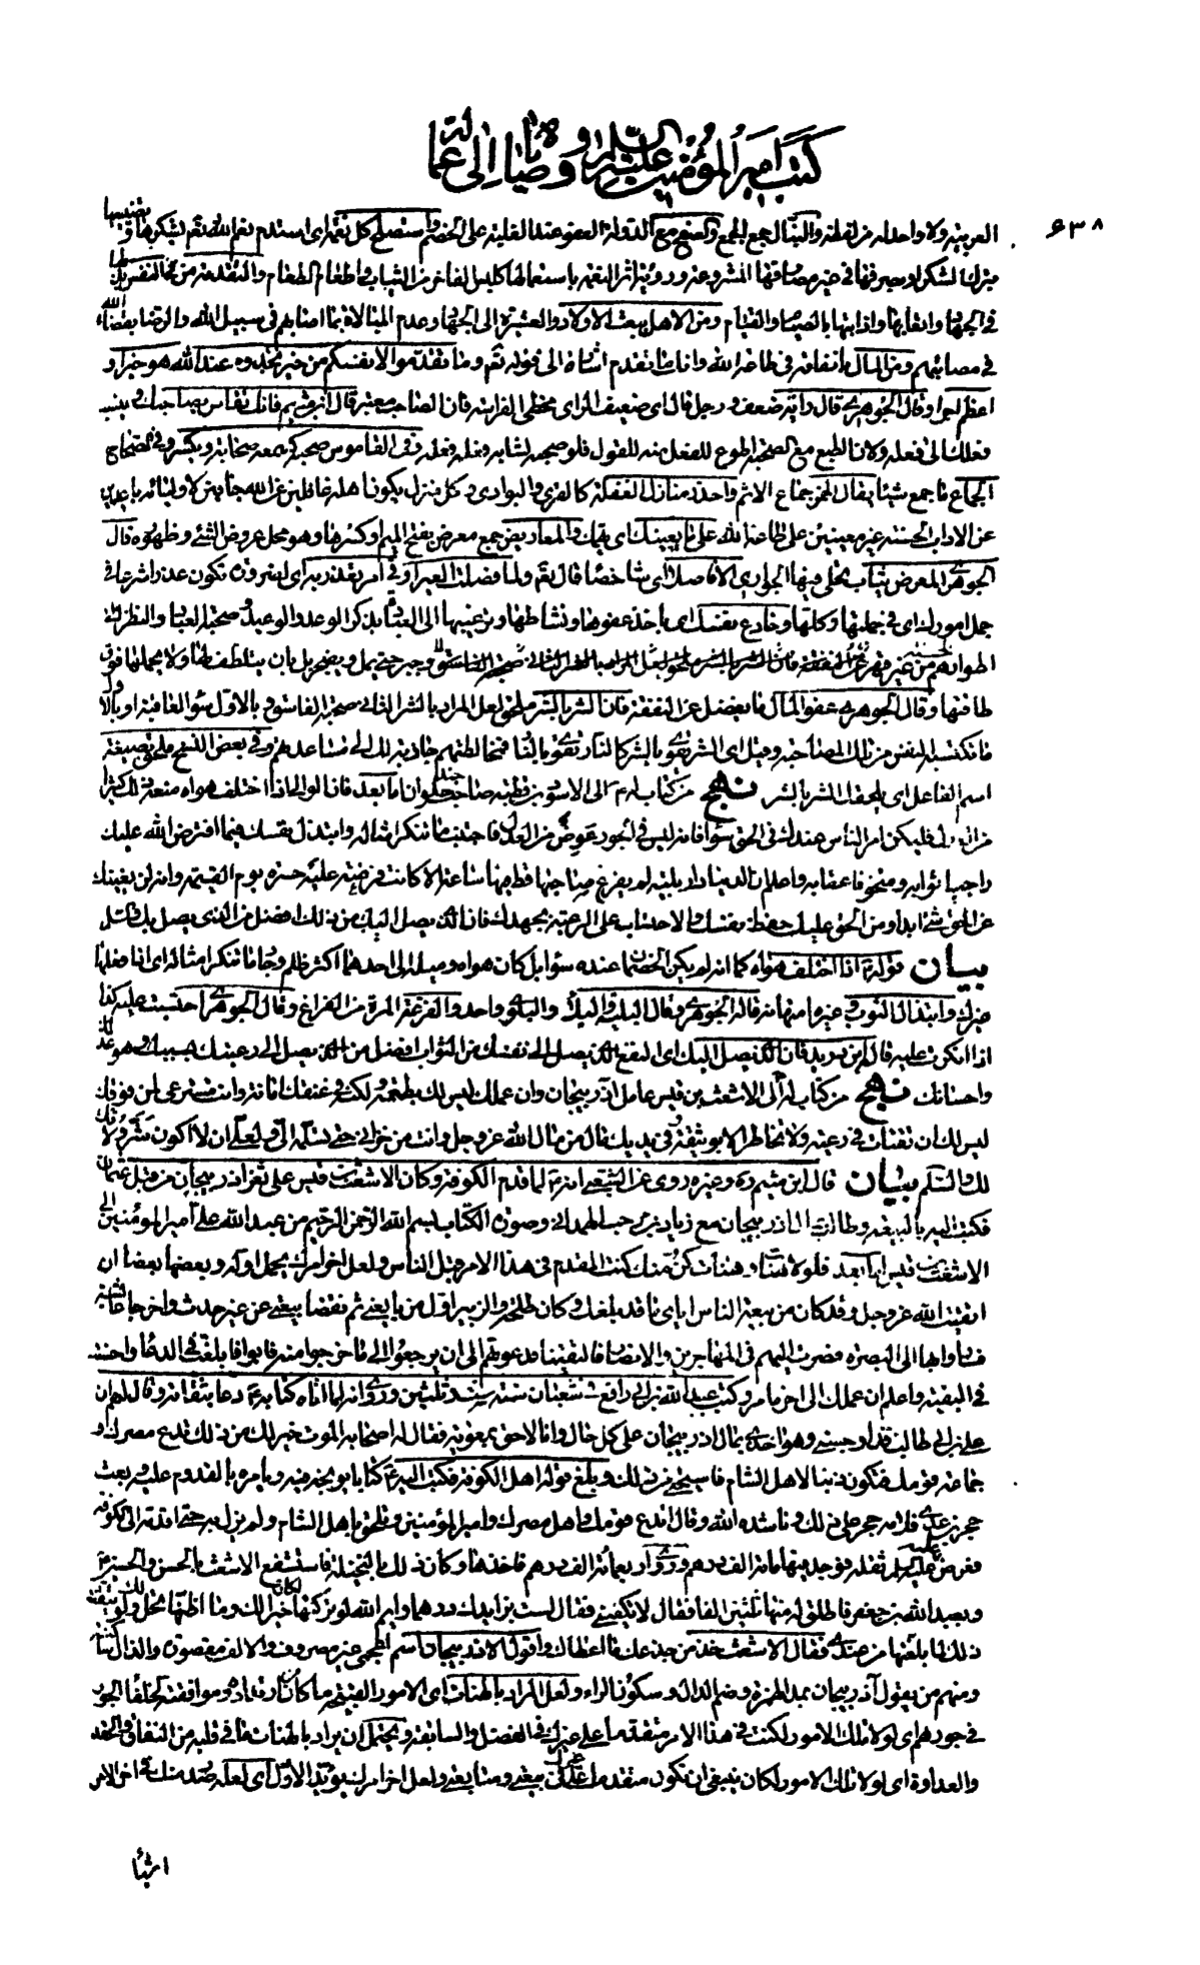 كتب أمير المؤمنين عليه السلام ووصاياه إلى عماله
٦٣٨
العربية ولا واحد له من لفظه والتبال جمع الجمع والصفح مع الدولة العفو عند الغلبة على الخصم واستصلح كل نعمة أى استدم نعم الله تعالى بشكرها وتضييعها
بترك الشكر أو بصرفها فى غير مصارفها المشروعة ورؤية أثر النعمة باستعمالها كلبس الفاخر من الثياب وإطعام الطعام والتقدمة من
فى الجهاد وإتعابها وإذابتها بالصيام والقيام ومن الأهل ببعث الأولاد والعشيرة إلى الجهاد وعدم المبالاة بما أصابهم فى سبيل الله والرضا بقضاء الله
فى مصائبهم ومن المال بإنفاقه فى طاعة الله وإنك ما تقدم إشارة إلى قوله تعالى وما تقدموا لأنفسكم من خير تجدوه عند الله هو خيرا و
أعظم أجرا وقال الجوهرى قال رأيه ضعف ورجل فال أى ضعيف الرأى مخطئ الفراسة فإن الصاحب معتبر قال ابن ميثم فإنك تقاس بصاحبك و ينسب
فعلك إلى فعله ولأن الطبع مع الصحبة أطوع للفعل منه للقول فلو صحبه لشابه فعله فعله وفى القاموس صحبه كسمعه صحابة ويكسر وفى الصحاح
الجماع ما جمع شيئا يقال الخمر جماع الإثم واحذر منازل الغفلة كالقرى والبوادى وكل منزل يكون أهله غافلين عن الله جافين لأوليائه باعدين
عن الآداب الحسنة غير معينين على طاعة الله على ما يعينك أى يهمك والمعاريض جمع معرض بفتح الميم أو كسرها وهو محل عروض الشئ وظهوره قال
الجوهرى المعرض ثياب تجلى فيها الجوارى إلا فاصلا أى شاخصا قال تعالى ولما فصلت العير أو فى أمر تعذر به أى لضرورة تكون عذرا شرعا فى
جمل أمورك أى فى جملتها وكلها وخادع نفسك أى بأخذ عفوها ونشاطها وترغيبها إلى العبادة بذكر الوعد والوعيد وصحبة العباد والنظر إلى
أطوارهم من غير قهر
طاقتها وقال الجوهرى عفو المال ما يفضل عن النفقة فإن الشر بالشر ملحق لعل المراد بالشر الثانى صحبة الفاسق وبالأول سوء العاقبة أو بالأول
ما تكتسبه النفس من تلك المصاحبة وقيل أى الشر يقوى بالشر كالنار تقوى بالنار فمخالطتهم جاذبة لك إلى مساعدتهم وفى بعض النسخ ملحق بصيغة
اسم الفاعل أى يلحقك الشر بالشر نهج من كتاب له ع إلى الأسود بن قطبة صاحب جند حلوان أما بعد فإن الوالى إذا اختلف هواه منعه ذلك كثيرا
من العدل فليكن أمر الناس عندك فى الحق سواء فإنه ليس فى الجور عوض من العدل فاجتنب ما تنكر أمثاله وابتذل نفسك فيما افترض الله عليك
راجيا ثوابه ومتخوفا عقابه واعلم أن الدنيا دار بلية لم يفرغ صاحبها قط فيها ساعة إلا كانت فرغته عليه حسرة يوم القيمة وأنه لن يغنيك
عن الحق شئ أبدا ومن الحق عليك حفظ نفسك والاحتساب على الرعية بجهدك فإن الذى يصل إليك من ذلك أفضل من الذى يصل بك والسلام
بيان قوله إذا اختلف هواه كما إذا لم يكن الخصمان عنده سواء بل كان هواه وميله إلى أحدهما أكثر ظلم وجار ما تنكر أمثاله أى إذا فعلها
غيرك وابتذال الثوب وغيره امتهانه قاله الجوهرى وقال البلية والبلاء والبلوى واحد والفرغة المرة من الفراغ وقال الجوهرى احتسبت عليه كذا
إذا أنكرت عليه قاله ابن دريد فإن الذى يصل إليك أى النفع الذى يصل إلى نفسك من الثواب أفضل من الذى يصل إلى رعيتك بسببك وهو عدلك
وإحسانك نهج من كتاب له إلى الأشعث بن قيس عامل آذربيجان وإن عملك ليس لك بطعمة ولكنه فى عنقك أمانة وأنت مسترعى لمن فوقك
ليس لك أن تفتات فى رعية ولا تخاطر إلا بوثيقة وفى يديك مال من مال الله عز وجل وأنت من خزانى حتى تسلمه إلى ولعلى أن لا أكون شر ولاتك
لك والسلم بيان قال ابن ميثم ره وغيره روى عن الشعبى أنه ع لما قدم الكوفة وكان الأشعث بن قيس على ثغر آذربيجان من قبل عثمان
فكتب إليه بالبيعة وطالبه بمال آذربيجان مع زياد بن مرحب الهمدانى وصورة الكتاب بسم الله الرحمن الرحيم من عبد الله على أمير المؤمنين إلى
الأشعث بن قيس أما بعد فلولا هنات وهنات كن منك كنت المقدم فى هذا الأمر قبل الناس ولعل آخر أمرك يحمل أوله وبعضها بعضا إن
اتقيت الله عز وجل وقد كان من بيعة الناس إياى ما قد بلغك وكان طلحة والزبير أول من بايعنى ثم نقضا بيعتى عن غير حدث وأخرجا عائشة
فساروا بها إلى البصرة فصرت إليهم فى المهاجرين والأنصار فالتقينا فدعوتهم إلى أن يرجعوا إلى ما خرجوا منه فأبوا فأبلغت فى الدعاء وأحسنت
فى البقية واعلم أن عملك إلى آخر ما مر وكتب عبد الله بن أبى رافع فى شعبان سنة ست وثلثين وروى أنه لما أتاه كتابه ع دعا بثقاته وقال لهم إن
على بن أبى طالب قد أوحشنى وهو آخذى بمال آذربيجان على كل حال وأنا لاحق بمعوية فقال له أصحابه الموت خير لك من ذلك تدع مصرك و
جماعة قومك فتكون ذنبا لأهل الشام فاستحيى من ذلك وبلغ قوله أهل الكوفة فكتب إليه ع كتابا يوبخه فيه ويأمره بالقدوم عليه وبعث
حجر بن عدى فلامه حجر على ذلك وناشده الله وقال أتدع قومك وأهل مصرك وأمير المؤمنين وتلحق بأهل الشام ولم يزل به حتى أقدمه إلى الكوفة
فعرض عليه ثقله فوجد فيها مائة ألف درهم وروى أربعمائة ألف درهم فأخذها وكان ذلك بالنخيلة فاستشفع الأشعث بالحسن والحسين ع
وبعبد الله بن جعفر فأطلق له منها ثلثين ألفا فقال لا يكفينى فقال لست بزايدك درهما وأيم الله لو تركتها لكان خيرا لك وما أظنها تحل لك ولو تيقنت
ذلك لما بلغتها من عندى فقال الأشعث خذ من جذعك ما أعطاك وأقول آذربيجان اسم أعجمى غير مصروف والألف مقصورة والذال ساكنة
ومنهم من يقول آذربيجان بمد الهمزة وضم الذال وسكون الراء ولعل المراد بالهنات أى الأمور القبيحة ما كان من ارتداده وموافقته لخلفاء الجور
فى جورهم أى لولا تلك الأمور لكنت فى هذا الأمر متقدما على غيرك فى الفضل والسابقة ويحتمل أن يراد بالهنات ما فى قلبه من النفاق والحقد
والعداوة أى لولا تلك الأمور لكان ينبغى أن تكون متقدما على غيرك فى بيعتى ومتابعتى ولعل آخر أمرك يؤيد الأول أى لعله صدر منك فى آخر الأمر
أشياء